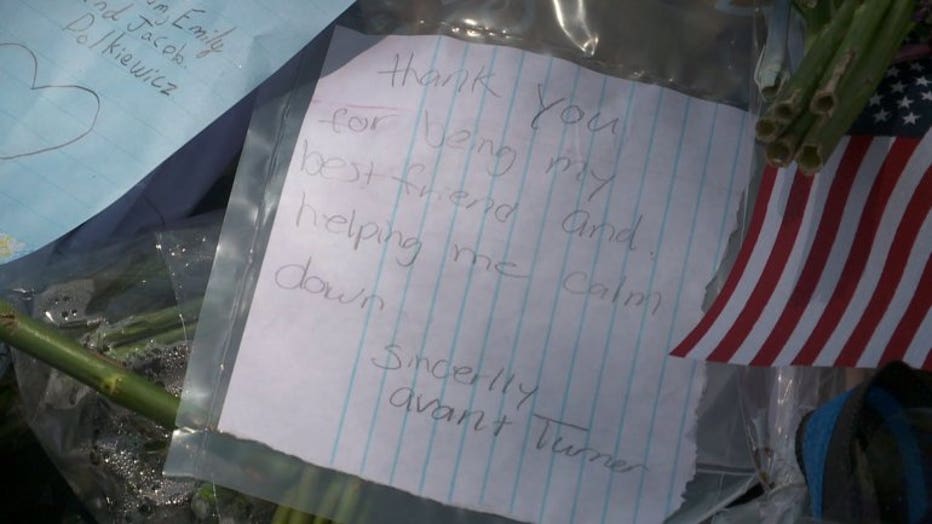 Emily
and Jacob
Dalkiewicz
thank you
for being my
best friend and.
helping me calm
down
sincerlly
avant Turner